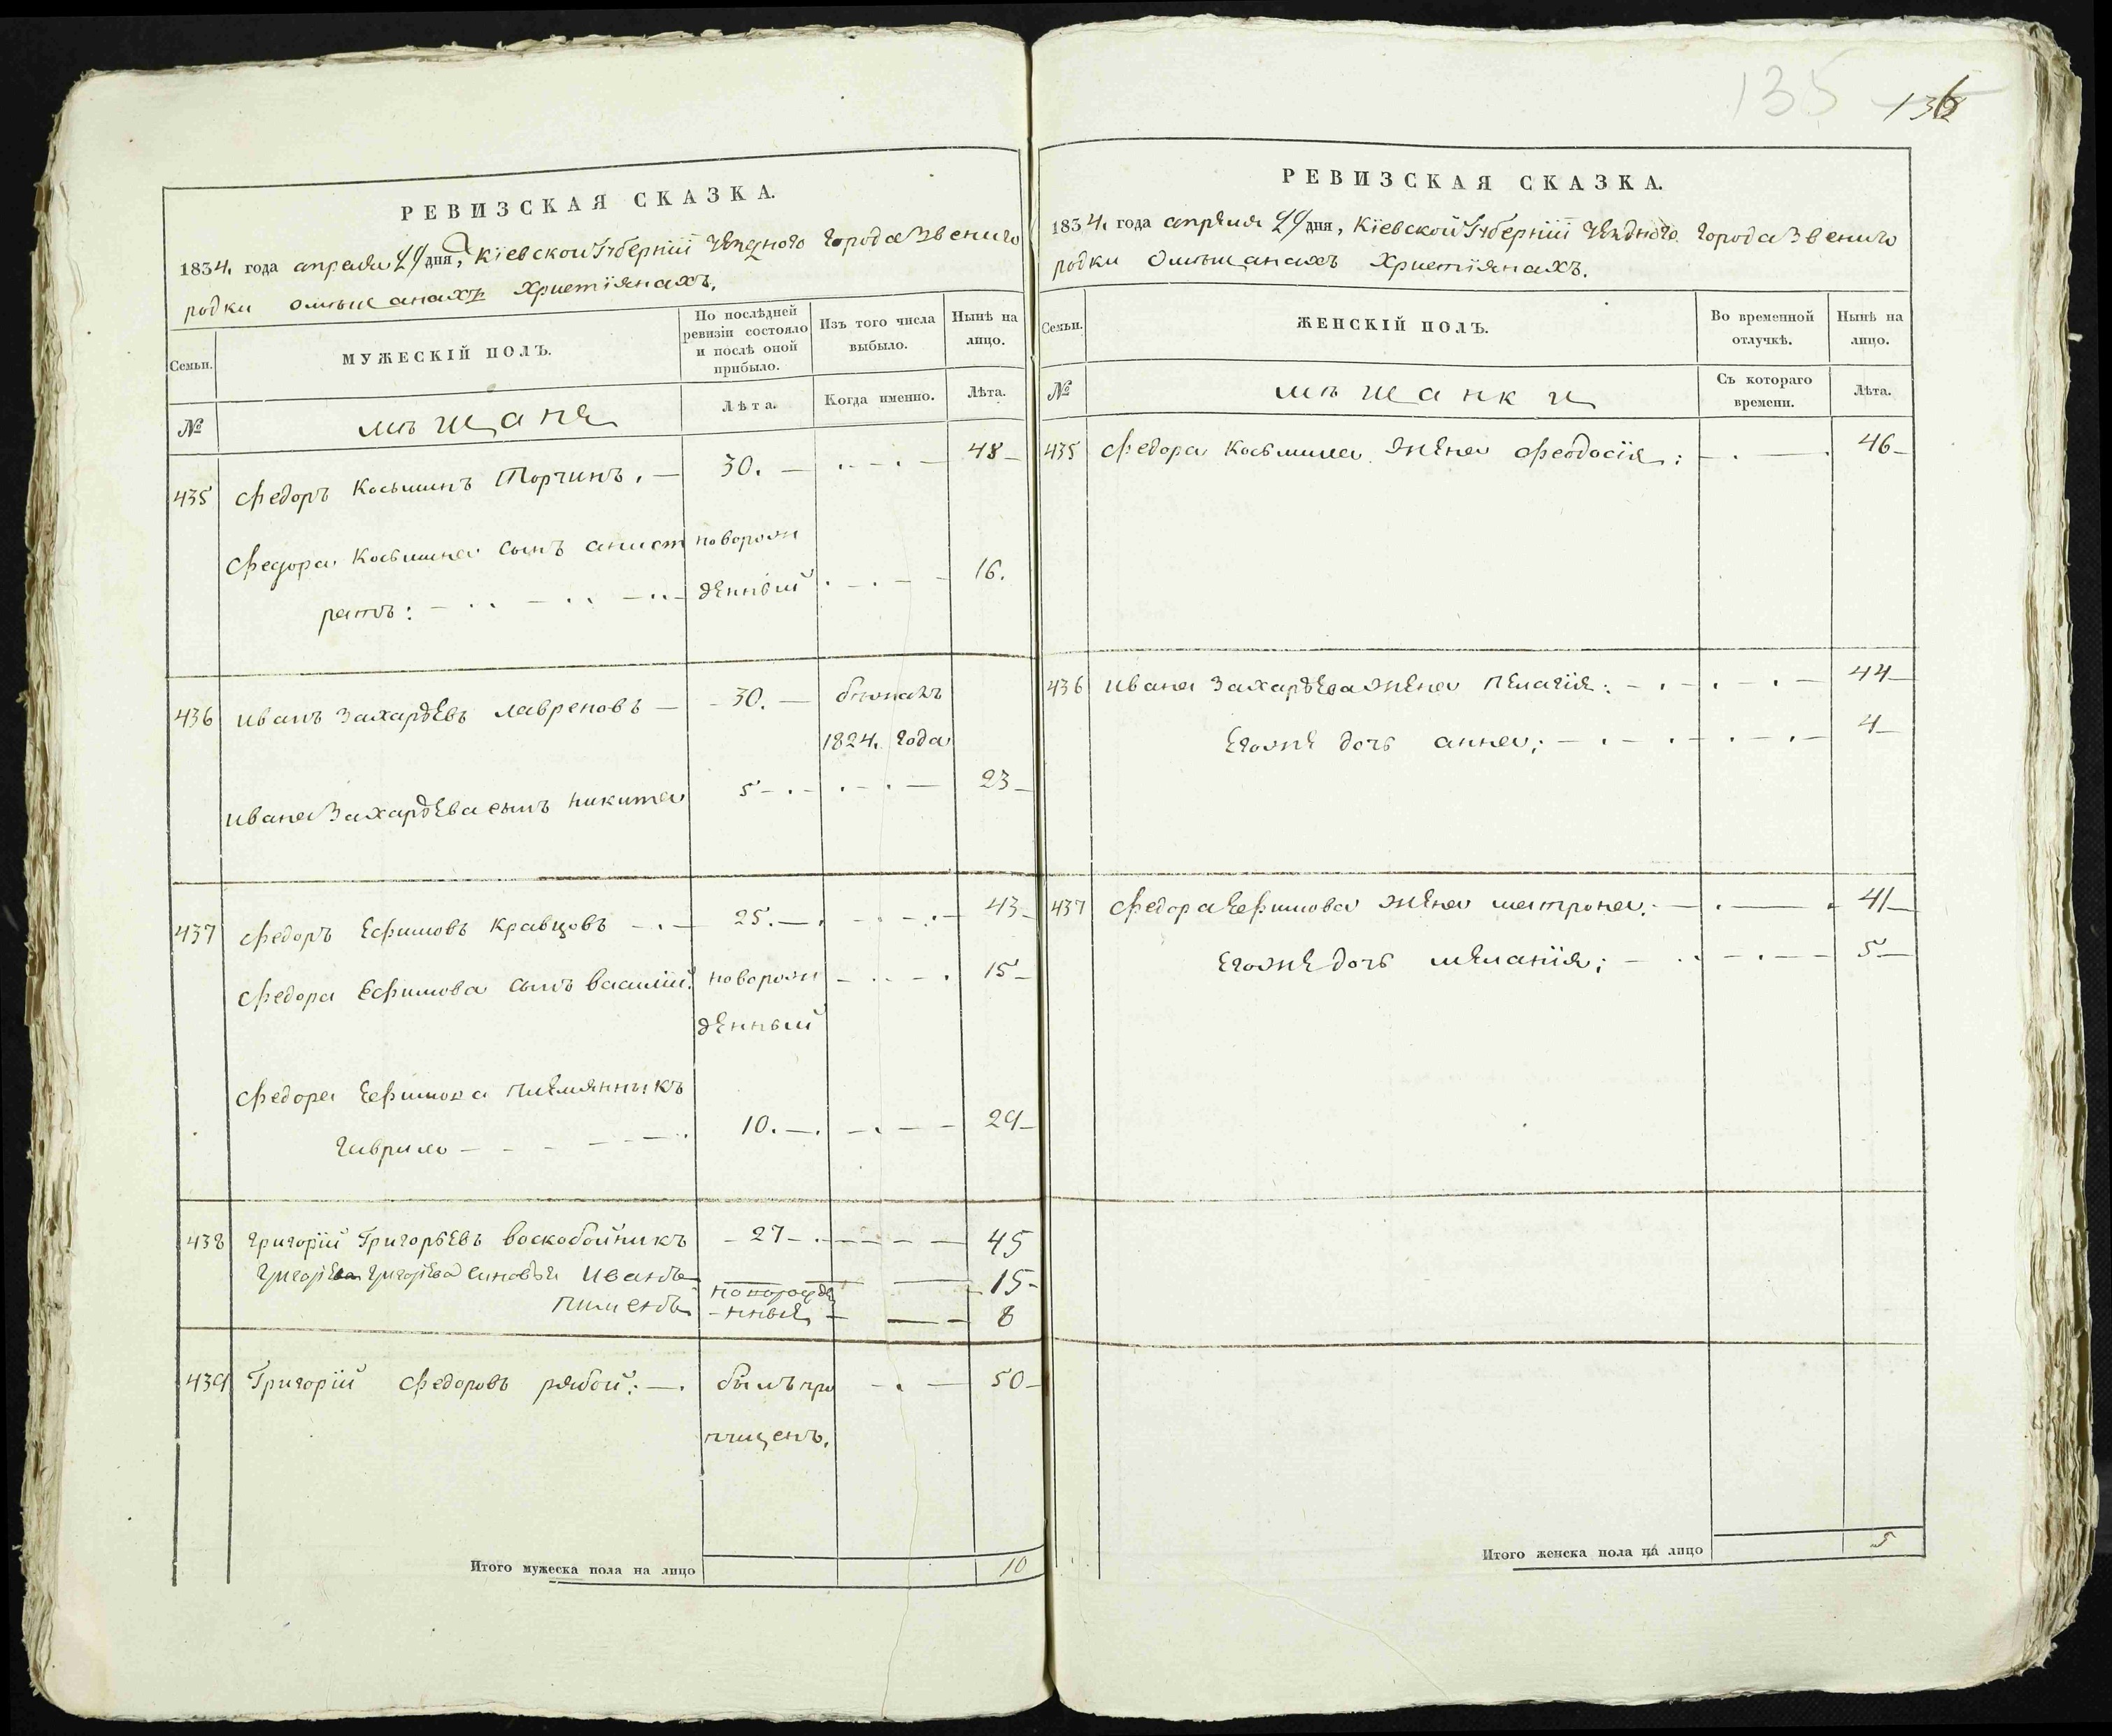 135 136
РЕВИЗСКАЯ СКАЗКА.
1834. года апреля 29 дня, Кіевской Губерніи уезднаго города Звениго
родки о мѣщанахъ Христіянахъ.
Семьи.
МУЖЕСКІЙ ПОЛЪ.
По послѣдней
ревизіи состояло
и послѣ оной
прибыло.
Изъ того числа
выбыло.
Нынѣ на
лицо.
№
мѣщане
Лѣта.
Когда именно.
Лѣта.
435 Федоръ Косьминъ Торчинъ. — 30. — 48
Федора Косьмина сынъ анист новорож
ратъ: — денный 16.
436 иванъ Захарьевъ лавреновъ — 30. —
1824. года
ивана Захарьева сынъ никита 5 — 23
437 Федоръ Ефимовъ Кравцовъ — 25. — 43
Федора Ефимова сынъ василій: новорож 15
денный
Федора Ефимова племянникъ
гаврило — 10. — 29
438 григорій Григорьевъ воскобойникъ — 27 — 45
григорьева синовья иванъ — 15
пименъ новорожде
— нные — 8
439 Григорій Федоровъ рябой: — былъ про — 50
пущенъ.
Итого мужеска пола на лицо 10
РЕВИЗСКАЯ СКАЗКА.
1834. года апреля 29 дня, Кіевской Губерніи уезднаго города Звениго
родки о мѣщанахъ Христіянахъ.
Семьи.
ЖЕНСКІЙ ПОЛЪ.
Во временной
отлучкѣ.
Нынѣ на
лицо.
№
мѣщанки
Съ котораго
времени.
Лѣта.
435 Федора Косьмина жена Феодосія: — 46
436 ивана Захарьева жена пелагія: — 44
Егоже дочь анна: — 4
437 Федора Ефимова жена матрона: — 41
Егоже дочь меланія: — 5
Итого женска пола на лицо 5